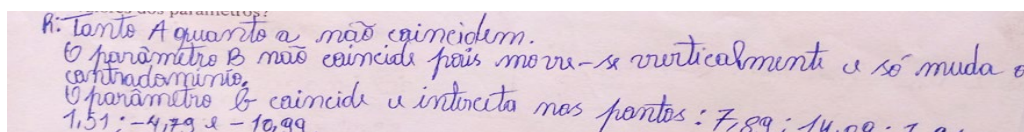 dos parâmetros?
R: Tanto A quanto a não coincidem.
O parâmetro B não coincide pois move-se verticalmente e só muda o
contradomínio.
O parâmetro b coincide e interceta nos pontos: 7,89; 14,09;
1,51; -4,79 e -10,99